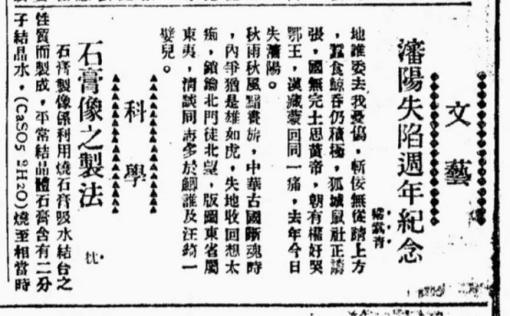 文藝
瀋陽失陷週年紀念
地維委去我憂惕,斬佞無從請上方
,蠶食鯨吞仍積極,狐城鼠社正
張,國無完土思黃帝,朝有權奸哭
鄂王,漢藏蒙回同一痛,去年今日
失瀋陽。
秋雨秋風黯,中華古國斷魂時
,內爭猶是雄如虎,失地收回想太
痴,鎖鑰北門徒北望,版圖東省屬
東夷,清談同志多於鯽誰及汪錡一
嬰兒。
科學
石膏像之製法
忱
石膏製像係利用燒石膏吸水結台之
性質而製成,平常結晶體石膏含有二分
子結晶水,(CaSO5 2H2O)燒至相當時